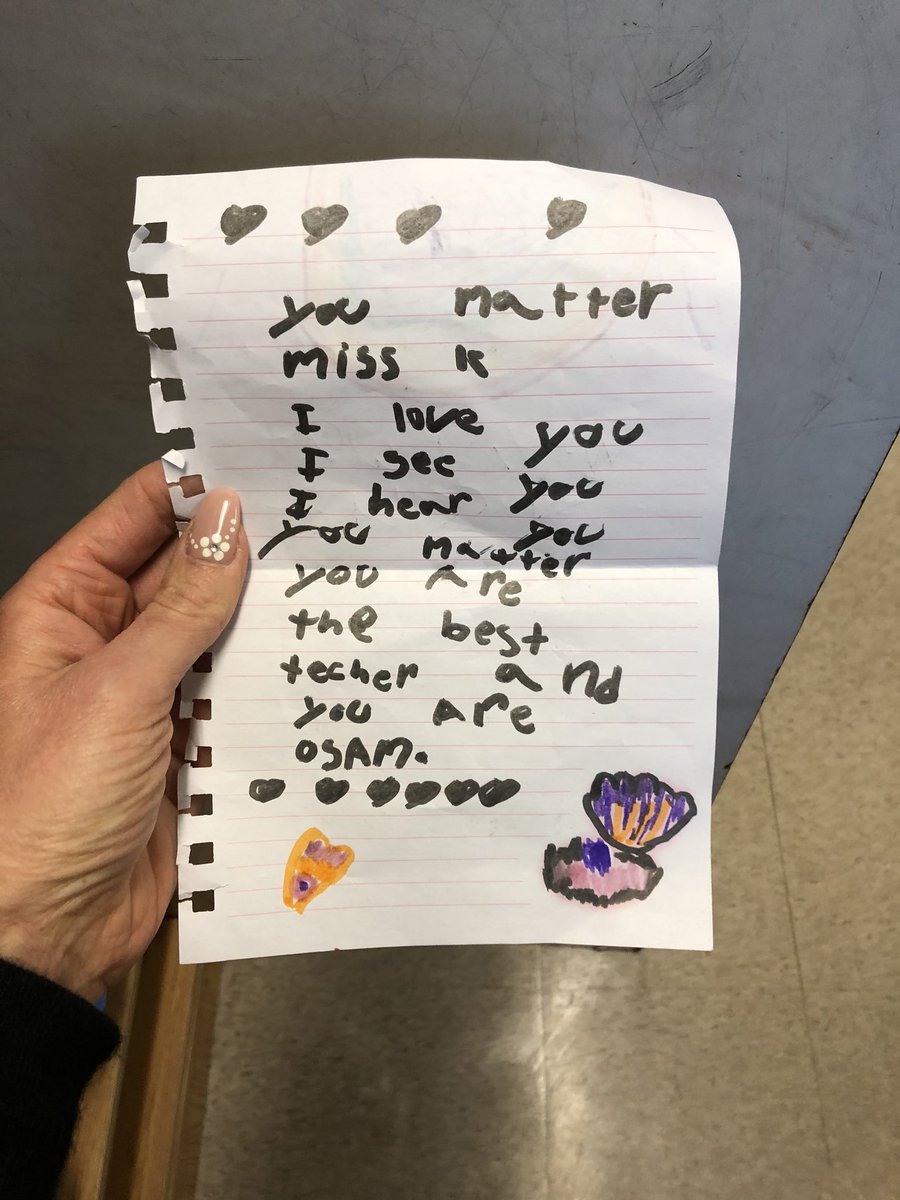 you matter
miss k
I love you
I see you
I hear you
you matter
you are
the best
techer and
you are
OSAM.